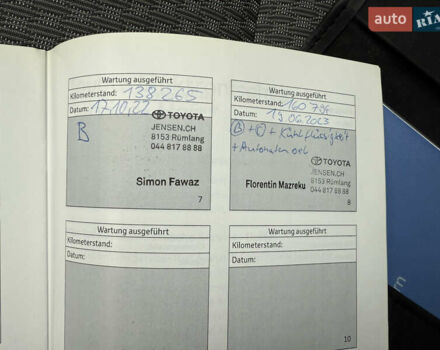 auto RIA
Wartung ausgeführt
Kilometerstand: 138265
Datum: 17.10.22
B
TOYOTA
JENSEN.CH
8153 Rümlang
044 817 88 88
Simon Fawaz
7
Wartung ausgeführt
Kilometerstand: 160796
Datum: 19.06.2023
+ Kühlflüssigkeit
+ Automatenoel
TOYOTA
JENSEN.CH
8153 Rümlang
044 817 88 88
Florentin Mazreku
8
Wartung ausgeführt
Kilometerstand:
Datum:
Wartung ausgeführt
Kilometerstand:
Datum:
10